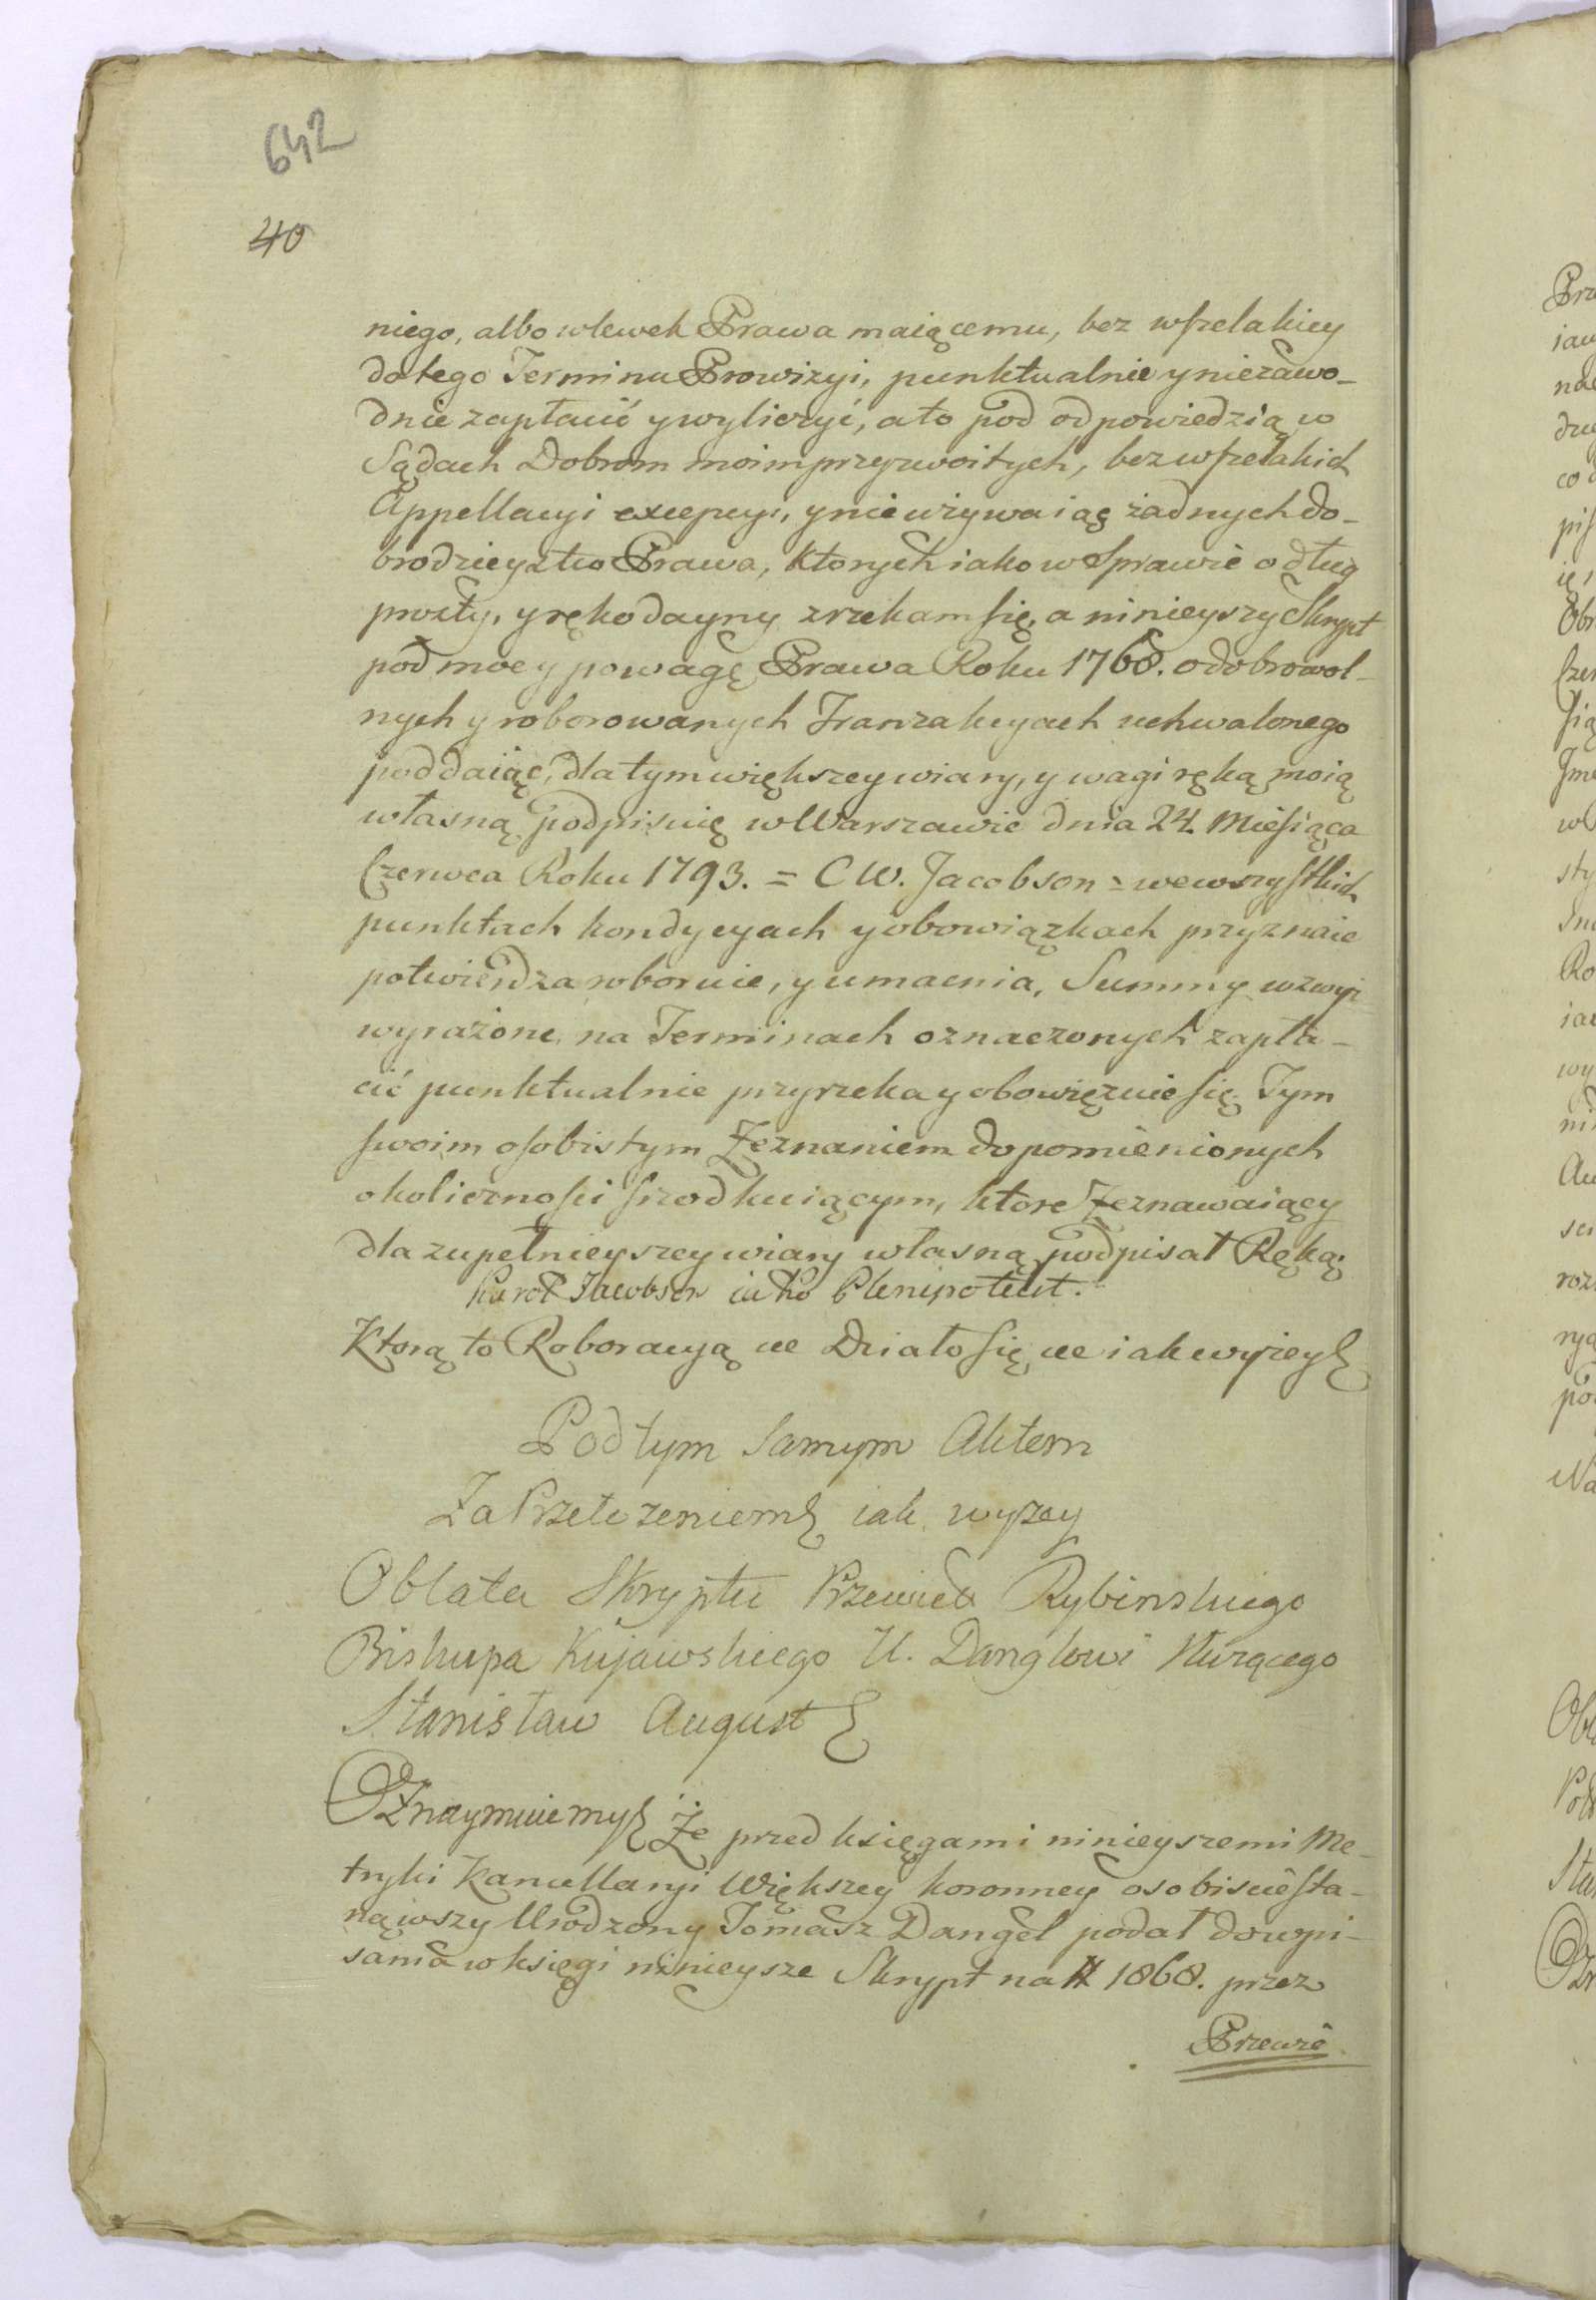 642
40
niego, albo wlewek Prawa maiącemu, bez wszelakiey
do tego Terminu Prowizyi, punktualnie y niezawo-
dnie zapłacić y wyliczyć, a to pod odpowiedzią w
Sądach Dobrom moim przyzwoitych, bez wszelakich
Appellacyi excepcyi, y nie używaiąc żadnych do-
brodzieystw Prawa, ktorych iako w Sprawie o dług
prosty, y rękodayny zrzekam się, a ninieyszy Skrypt
pod moc y powagę Prawa Roku 1768. o dobrowol-
nych y roborowanych Tranzakcyach uchwalonego
poddaiąc, dla tym większey wiary, y wagi ręką moią
własną podpisuię w Warszawie dnia 24 Miesiąca
Czerwca Roku 1793. = C W. Jacobson = we wszystkich
punktach kondycyach y obowiązkach przyznaie
potwierdza roboruie, y umacnia, Summy wzwyż
wyrażone na Terminach oznaczonych zapła-
cić punktualnie przyrzeka y obowięzuie się. Tym
swoim osobistym Zeznaniem do pomienionych
okoliczności szrodkuiącym, ktore Zeznawaiący
dla zupełnieyszey wiary własną podpisał Ręką;
Karol Jacobson iako Plenipotent.
Ktorą to Roboracyą &c Działo się &c iak wyżey
Pod tym samym Aktem
Za Przełożeniem iak wyzey
Oblata Skryptu Przewieł Rybinskiego
Biskupa Kujawskiego U. Danglowi służącego
Stanisław August
Oznaymuiemy Że przed księgami ninieyszemi Me-
tryki Kancellaryi Większey koronney osobiscie sta-
nąwszy Urodzony Tomasz Dangel podał do wpi-
sania w księgi ninieysze Skrypt na # 1868. przez
Przewie